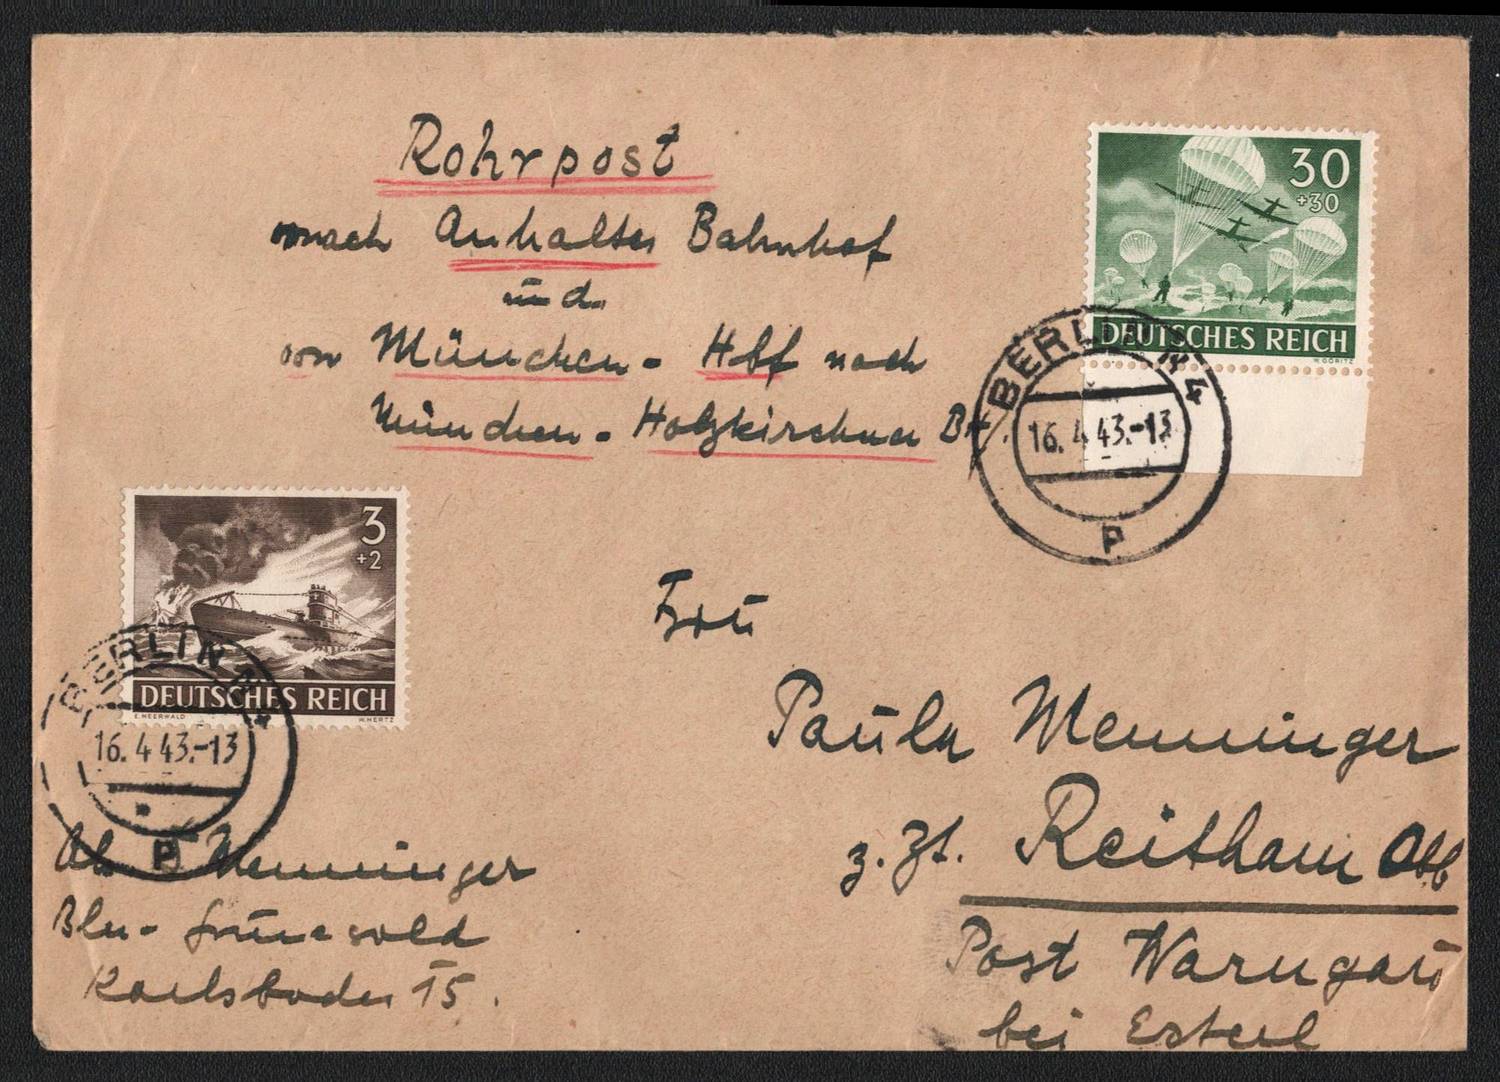 Rohrpost
nach Anhalter Bahnhof
und
von München - Hbf nach
München - Holzkirchner Bhf.
30
+30
DEUTSCHES REICH
W. GÖRITZ
BERLIN
16.4.43.-13
P
3
+2
DEUTSCHES REICH
E. MEERWALD
W. HERTZ
BERLIN
16.4.43.-13
P
Frau
Paula Menninger
z. Zt. Reitham Obb
Post Warngau
bei
Ab. Menninger
Bln - Grunewald
15.